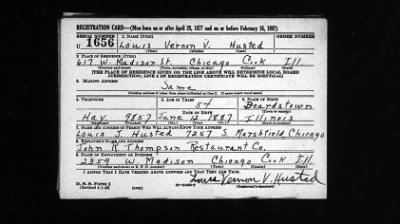 REGISTRATION CARD—(Men born on or after April 28, 1877 and on or before February 16, 1897)
SERIAL NUMBER 1. NAME (Print) ORDER NUMBER
U 1656 Louis Vernon V. Husted
2. PLACE OF RESIDENCE (Print)
617 W. Madison St. Chicago Cook Ill.
[THE PLACE OF RESIDENCE GIVEN ON THE LINE ABOVE WILL DETERMINE LOCAL BOARD
JURISDICTION; LINE 2 OF REGISTRATION CERTIFICATE WILL BE IDENTICAL]
3. MAILING ADDRESS
Same
4. TELEPHONE 5. AGE IN YEARS 6. PLACE OF BIRTH
54 Beardstown
DATE OF BIRTH
Hay. 9857 June 12 1887 Illinois
7. NAME AND ADDRESS OF PERSON WHO WILL ALWAYS KNOW YOUR ADDRESS
Louis J. Husted 7257 S. Marshfield, Chicago
8. EMPLOYER'S NAME AND ADDRESS
John R. Thompson Restaurant Co.
9. PLACE OF EMPLOYMENT OR BUSINESS
2359 W. Madison Chicago Cook Ill.
I AFFIRM THAT I HAVE VERIFIED ABOVE ANSWERS AND THAT THEY ARE TRUE.
Louis Vernon V. Husted